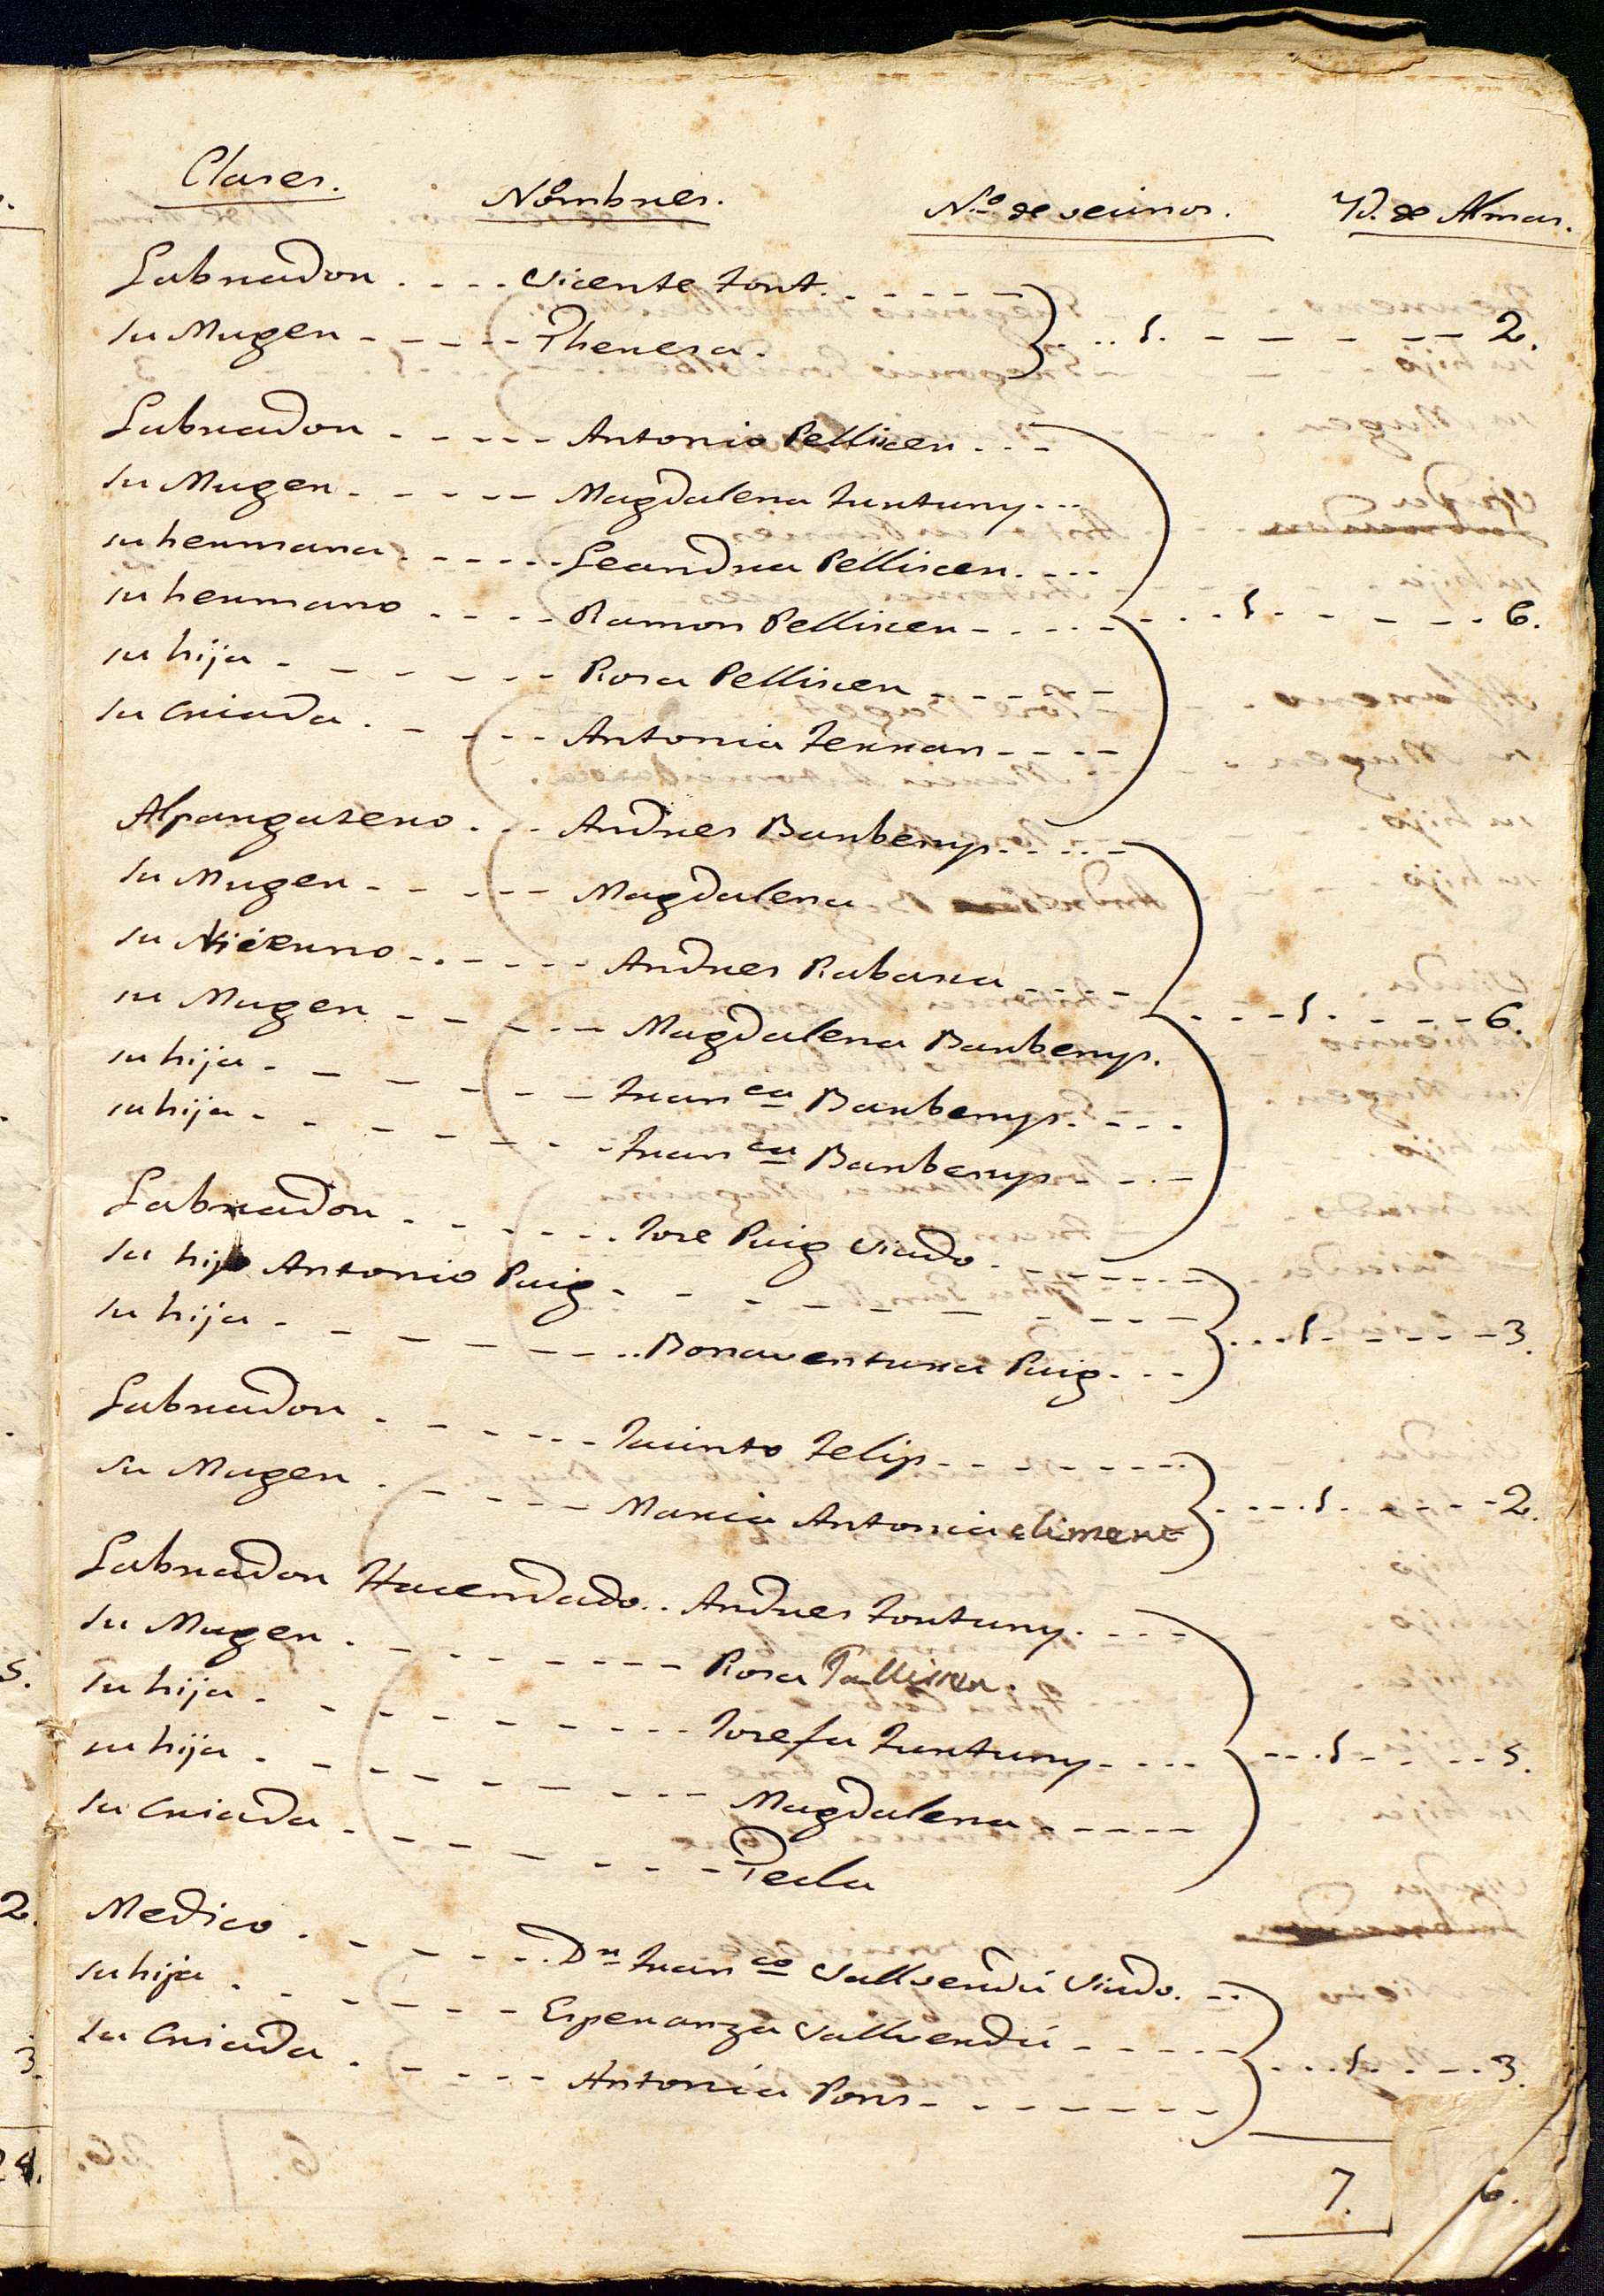 Clases. Nombres. N.o de vecinos. Yd. de Almas.
Labrador . . . . Vicente Font. . . . . .
su Muger - - - - - Theresa. . . . 1. - - - - - 2.
Labrador - - - - - Antonio Pellicer - - -
su Muger - - - - - Magdalena Funtuny - - -
su hermana - - - - - Leandra Pellicer. - - -
su hermano - - - - Ramon Pellicer - - - - - - - - 1. - - - - - 6.
su hija - - - - - - Rosa Pellicer - - - - -
su Criada. - - - - Antonia Ferran - - - -
Alpargatero. - - Andres Barbeny. - - - -
su Muger - - - - - Magdalena
su Nieto Yerno - - - - - - Andres Rabasa - - - -
su Muger - - - - - Magdalena Barbeny. - - - 1. - - - - 6.
su hija - - - - - - Franca Barbeny. - - -
su hija - - - - - - - Franca Barbeny - - - -
Labrador - - - - - Jose Puig Viudo - - - - - -
su hijo Antonio Puig - - - - - - - - -
su hija - - - - - - - Bonaventura Puig - - - . . . 1. - - - - 3.
Labrador - - - - - Jacinto Felip - - - - - - -
su Muger - - - - - Maria Antonia climent - - - - 1. - - - - 2.
Labrador Hacendado. . Andres Fontuny. - - -
su Muger - - - - - - - Rosa Pallicer.
su hija - - - - - - - - Josefa Funtuny - - - - - - - 1. - - - - 5.
su hija - - - - - - - - Magdalena - - - - -
su Criada - - - - - - - Tecla
Medico - - - - - - Dn Franco Vallverdú Viudo. - - -
su hija - - - - - - Esperanza Vallverdú - - - - - - - - 1. - - - - 3.
su Criada - - - - - Antonia Pons - - - - - - -
7.